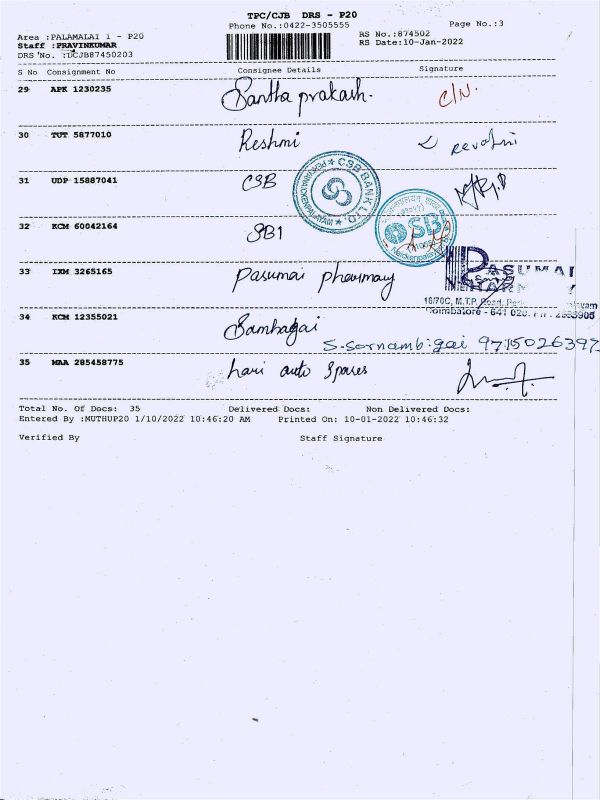 TPC/CJB DRS - P20
Phone No.:0422-3505555
Page No.:3
Area :PALAMALAI 1 - P20
RS No.:874502
Staff :PRAVINKUMAR
RS Date:10-Jan-2022
DRS No. :DCJB87450203
S No Consignment No Consignee Details Signature
29 APK 1230235 Santha prakash. C/N.
30 TUT 5877010 Reshmi Revathi
31 UDP 15887041 CSB
CSB BANK LTD.
32 KCM 60042164 SBI
SBI
33 IXM 3265165 Pasumai pharmacy
PASUMAI
16/70C, M.T.P. Road,
Coimbatore - 641 020.
34 KCM 12355021 Sambagai
S.Sornambigai
35 MAA 285458775 hari auto spares
Total No. Of Docs: 35 Delivered Docs: Non Delivered Docs:
Entered By :MUTHUP20 1/10/2022 10:46:20 AM Printed On: 10-01-2022 10:46:32
Verified By Staff Signature